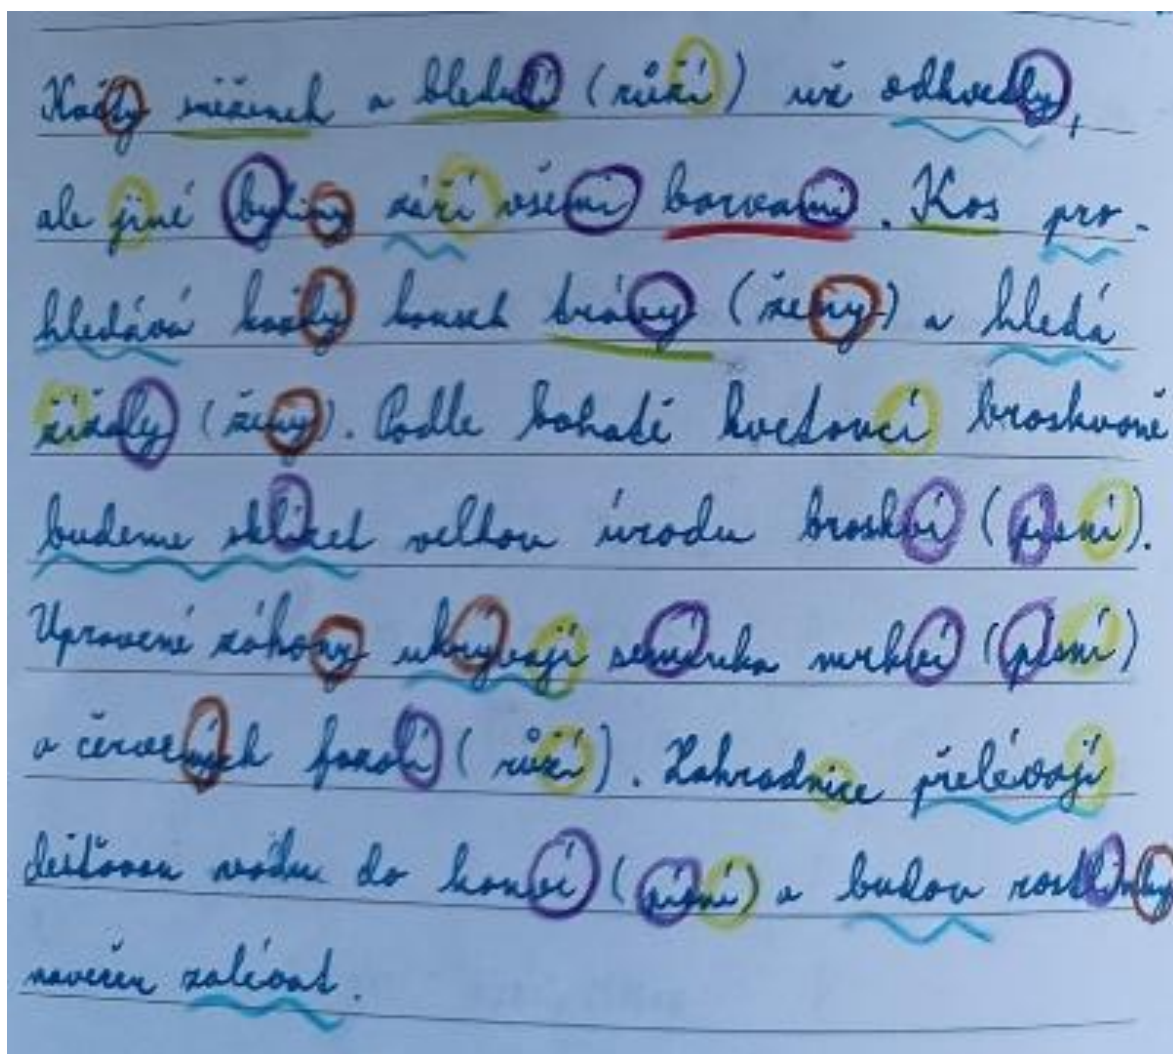 Květy sněženek a bledulí (růží) už odkvetly,
ale jiné byliny září všemi barvami. Kos pro-
hledává každý kousek trávy (ženy) a hledá
žížaly (ženy). Podle bohaté květoucí broskvoně
budeme sklízet velkou úrodu broskví (písní).
Upravené záhony ukrývají semínka mrkví (písní)
a červených fazolí (růží). Zahradnice přelévají
dešťovou vodu do konví (písní) a budou rostlinky
navečer zalévat.